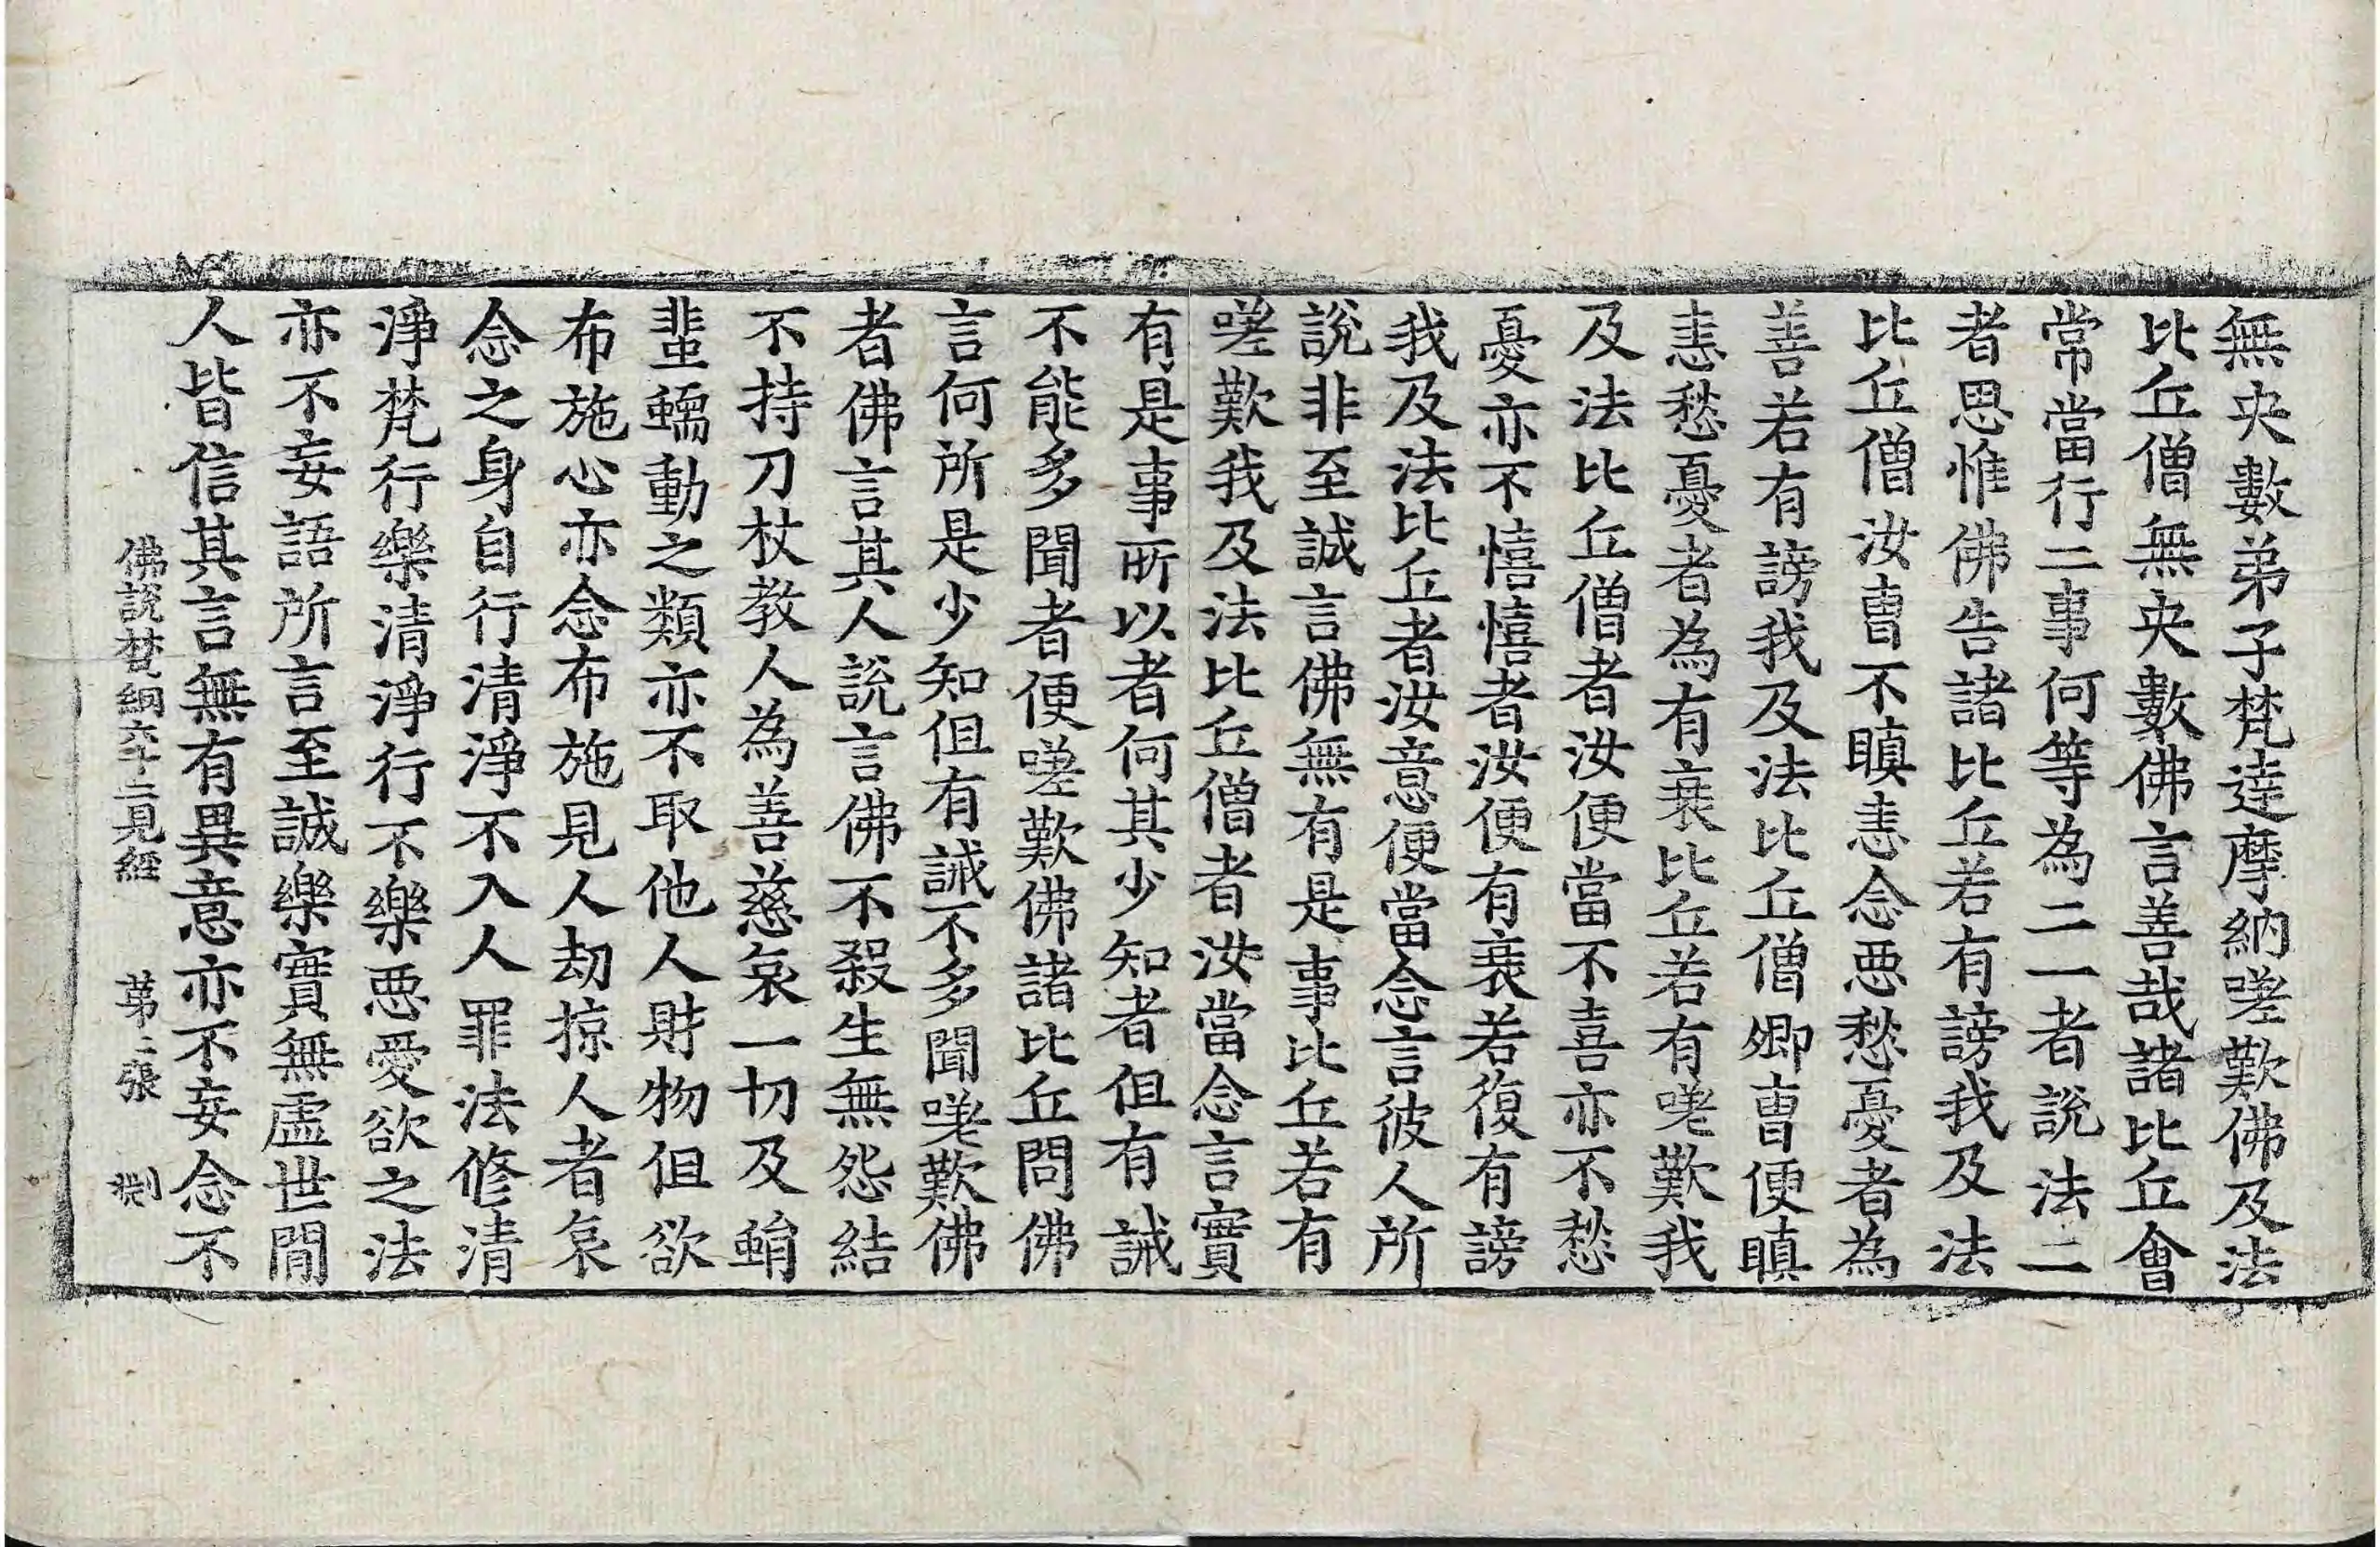 無央數弟子梵達摩納嗟歎佛及法
比丘僧無央數佛言善哉諸比丘會
常當行二事何等為二一者說法二
者思惟佛告諸比丘若有謗我及法
比丘僧汝曹不瞋恚念惡愁憂者為
善若有謗我及法比丘僧卿曹便瞋
恚愁憂者為有衰比丘若有嗟歎我
及法比丘僧者汝便當不喜亦不愁
憂亦不憘憘者汝便有衰若復有謗
我及法比丘者汝意便當念言彼人所
說非至誠言佛無有是事比丘若有
嗟歎我及法比丘僧者汝當念言實
有是事所以者何其少知者但有誡
不能多聞者便嗟歎佛諸比丘問佛
言何所是少知但有誡不多聞嗟歎佛
者佛言其人說言佛不殺生無怨結
不持刀杖教人為善慈哀一切及蜎
蜚蠕動之類亦不取他人財物但欲
布施心亦念布施見人劫掠人者哀
念之身自行清淨不入人罪法修清
淨梵行樂清淨行不樂惡愛欲之法
亦不妄語所言至誠樂實無虛世閒
人皆信其言無有異意亦不妄念不
佛說梵網六十二見經 第二張